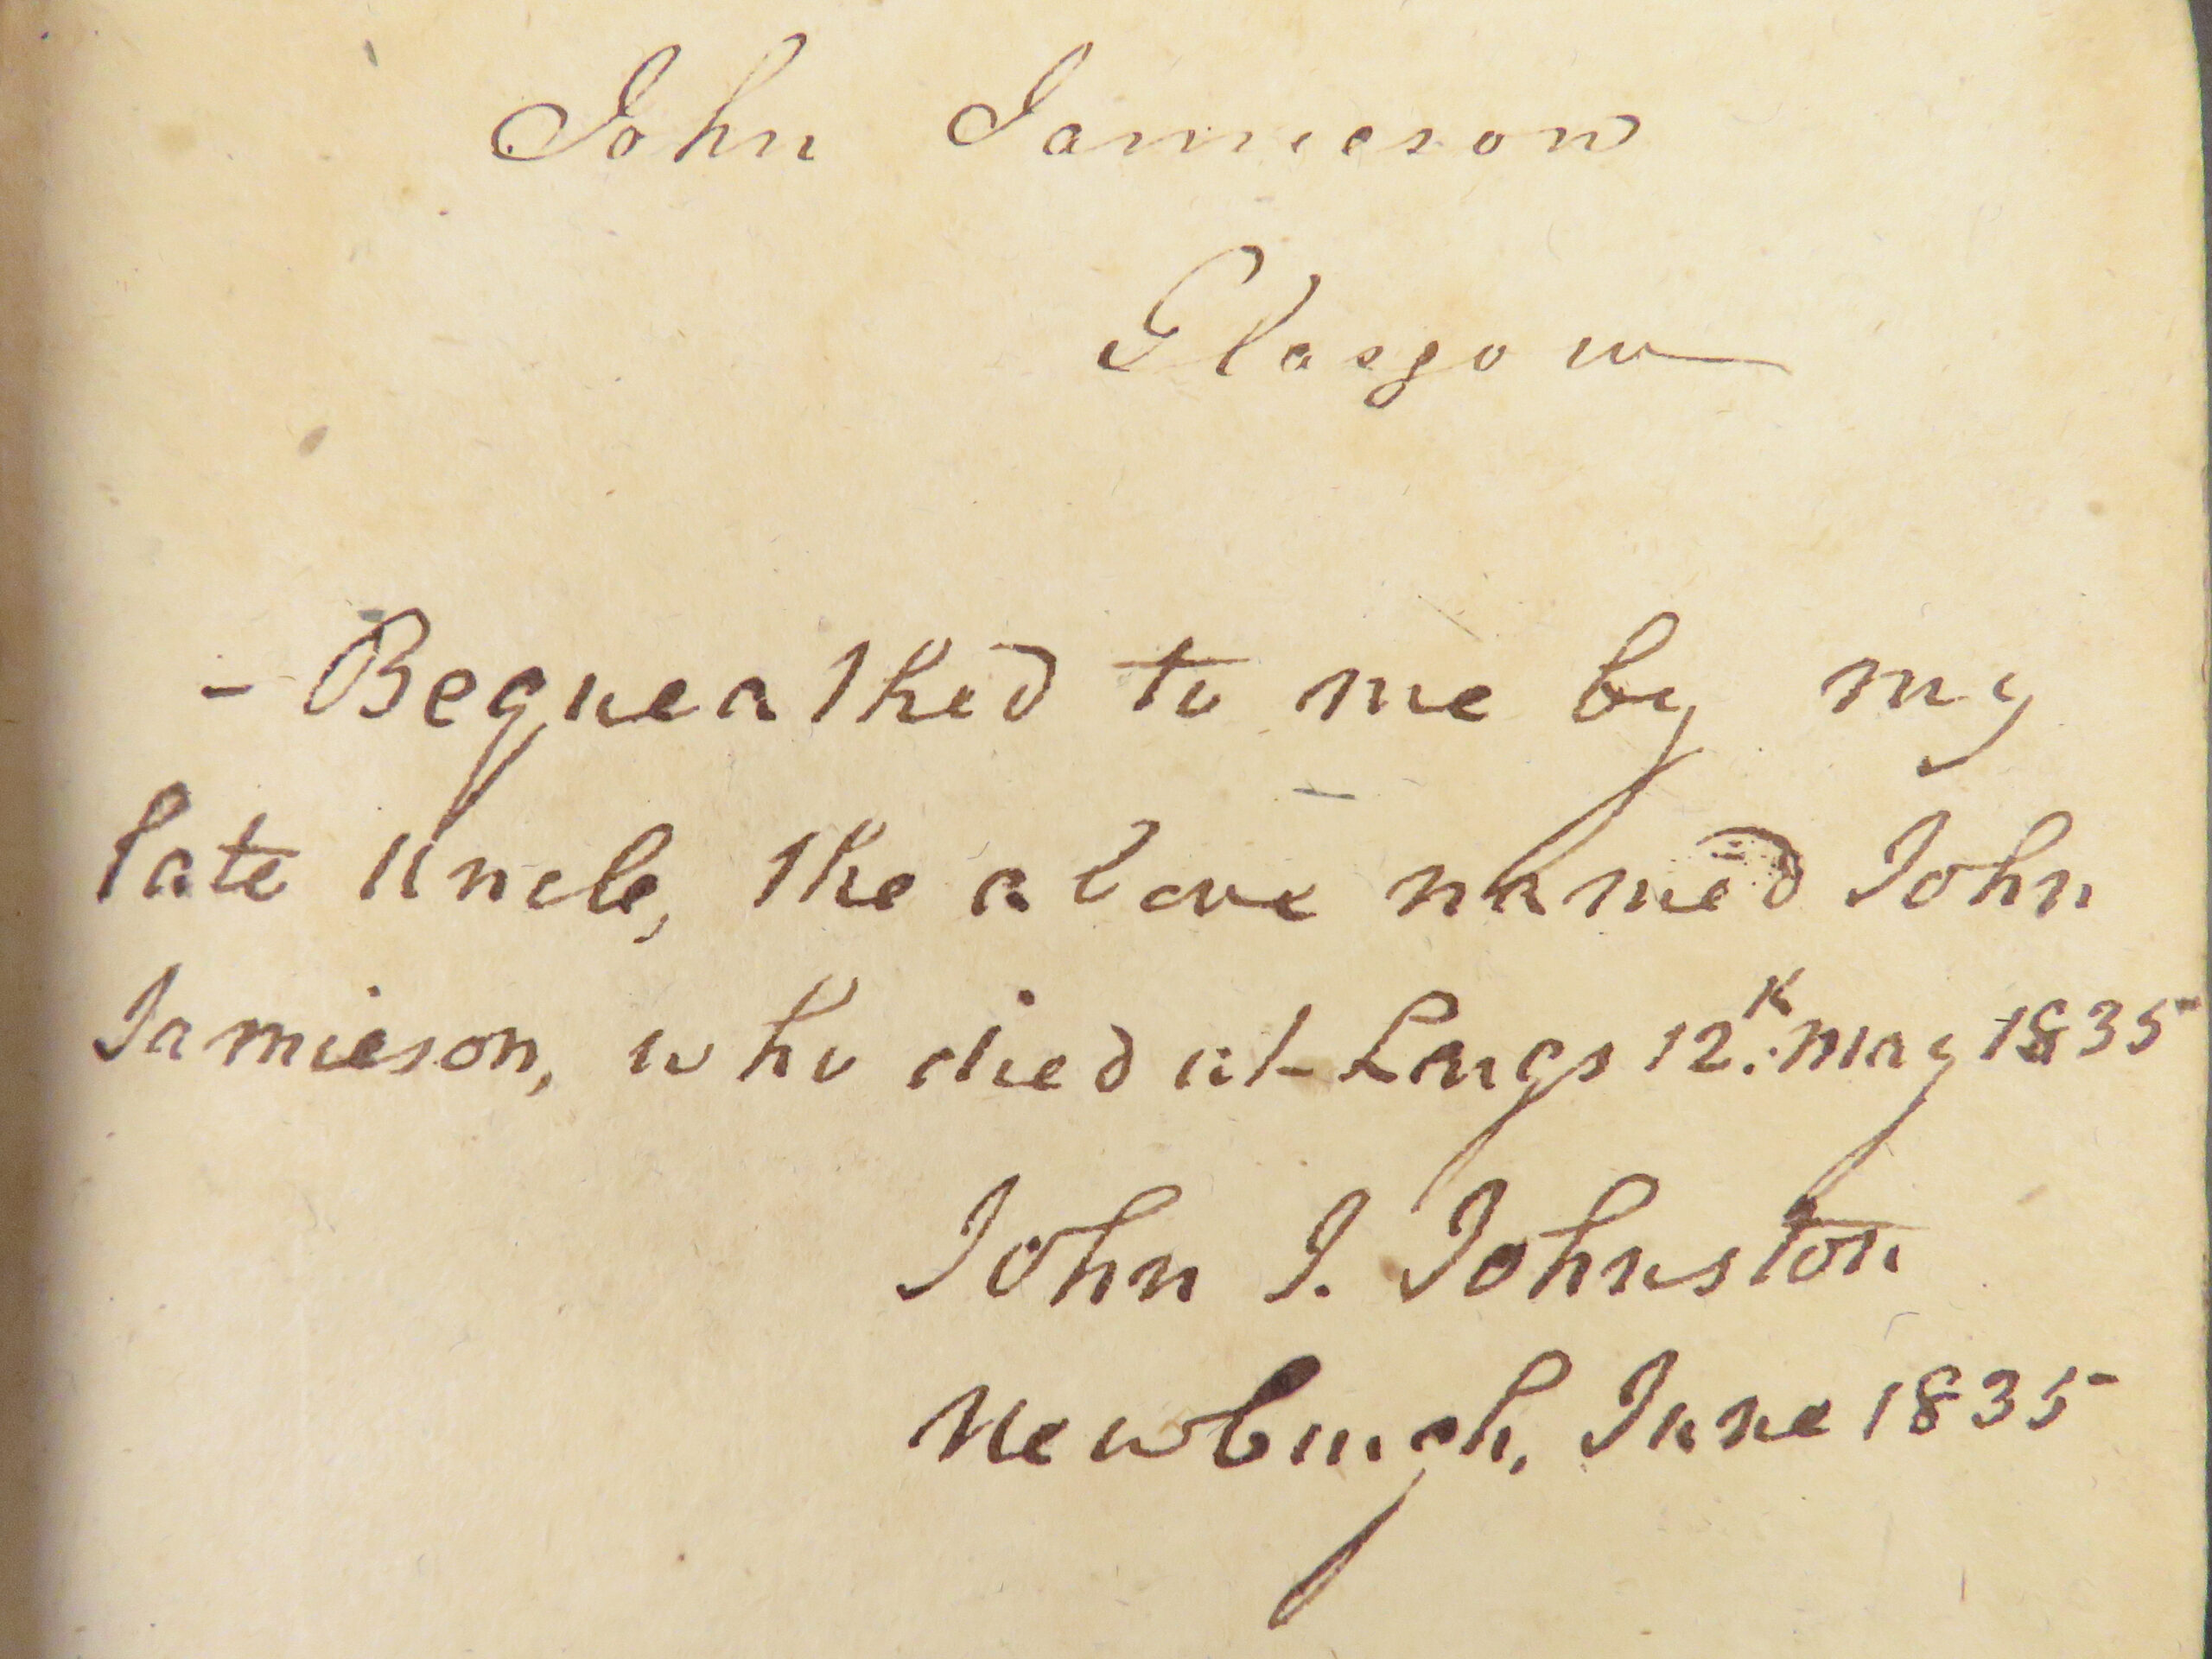 John Jamieson
Glasgow
- Bequeathed to me by my
late Uncle, the above named John
Jamieson, who died at Largs 12th. May 1835
John J. Johnston
Newburgh, June 1835